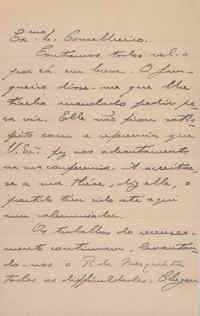 Exmo. Sr. Conselheiro.
Continuamos todos
por cá em breve. O Jun-
queiro disse-me que lhe
tinha mandado pedir pa-
ra vir. Elle não ficou satis-
feito com a referencia que
V. Exa. fez no adeantamento
na sua conferencia. A acreditar-
se a sua these, diz elle, o
partido tem sido até aqui
um calumniador.
Os trabalhos do recensea-
mento continuam, levantan-
do-nos o R. de Mesquita
todas as difficuldades. Chegam